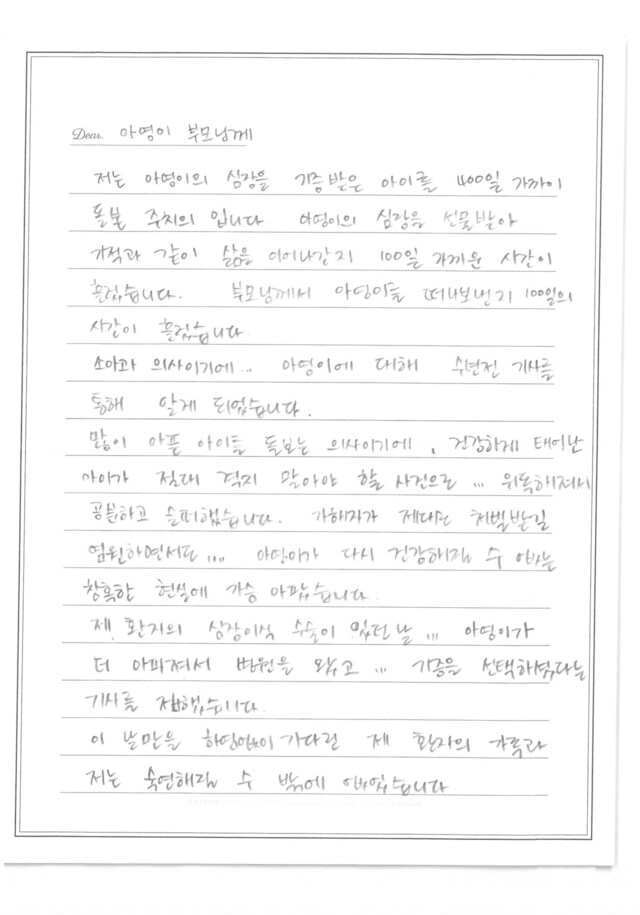 Dear. 아영이 부모님께
저는 아영이의 심장을 기증 받은 아이를 400일 가까이
돌본 주치의 입니다 아영이의 심장을 선물받아
가족과 같이 삶을 이어나간지 100일 가까운 시간이
흘렀습니다. 부모님께서 아영이를 떠나보낸지 100일의
시간이 흘렀습니다
소아과 의사이기에... 아영이에 대해 수년전 기사를
통해 알게 되었습니다.
많이 아픈 아이를 돌보는 의사이기에, 건강하게 태어난
아이가 절대 겪지 말아야 할 사건으로 ... 위독해져서
공분하고 슬퍼했습니다. 가해자가 제대로 처벌받길
염원하면서도 .... 아영이가 다시 건강해질 수 없는
참혹한 현실에 가슴 아팠습니다.
제 환자의 심장이식 수술이 있던 날 ... 아영이가
더 아파져서 병원을 왔고 ... 기증을 선택하셨다는
기사를 접했습니다.
이 날만을 하염없이 기다린 제 환자의 가족과
저는 숙연해질 수 밖에 없었습니다